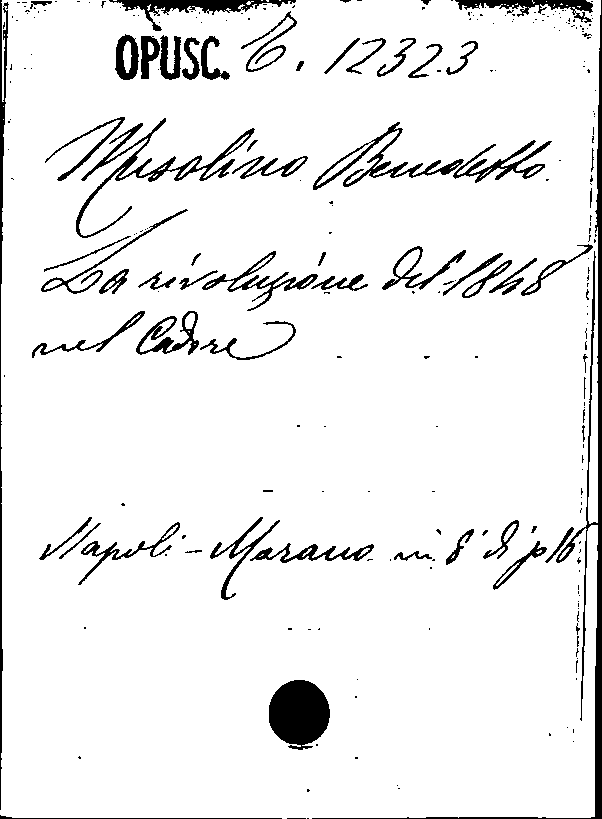 OPUSC. C. 12323
Musolino Benedetto
La rivoluzione del 1848
nel Cadore
Napoli - Morano in 8° di p 16.